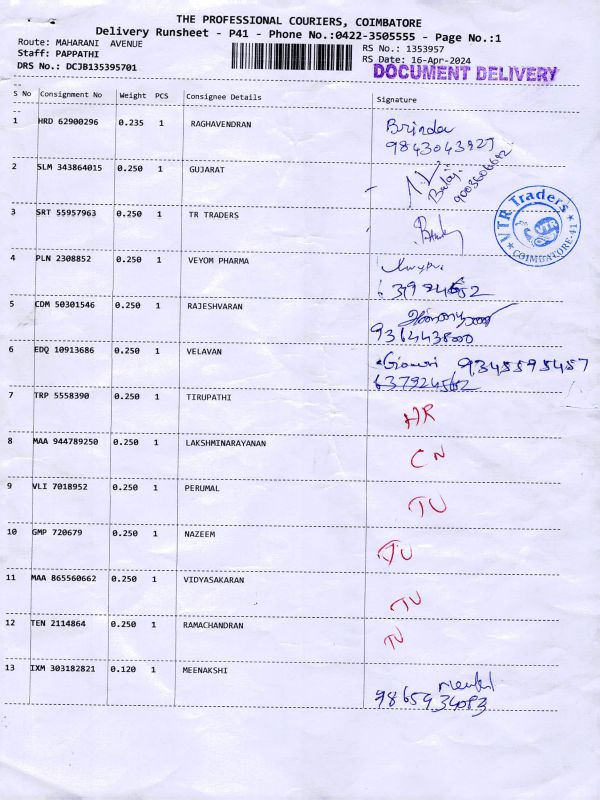 THE PROFESSIONAL COURIERS, COIMBATORE
Delivery Runsheet - P41 - Phone No.:0422-3505555 - Page No.:1
Route: MAHARANI AVENUE
RS No.: 1353957
Staff: PAPPATHI
RS Date: 16-Apr-2024
DRS No.: DCJB135395701
DOCUMENT DELIVERY
S No Consignment No Weight PCS Consignee Details Signature
1 HRD 62900296 0.235 1 RAGHAVENDRAN Brinda
9843043927
2 SLM 343864015 0.250 1 GUJARAT Balaji
3 SRT 55957963 0.250 1 TR TRADERS
VTR Traders
VTR
COIMBATORE-41
4 PLN 2308852 0.250 1 VEYOM PHARMA
5 CDM 50301546 0.250 1 RAJESHVARAN
6 EDQ 10913686 0.250 1 VELAVAN Giowri 9345595457
637924562
7 TRP 5558390 0.250 1 TIRUPATHI HR
8 MAA 944789250 0.250 1 LAKSHMINARAYANAN CN
9 VLI 7018952 0.250 1 PERUMAL TU
10 GMP 720679 0.250 1 NAZEEM TU
11 MAA 865560662 0.250 1 VIDYASAKARAN TU
12 TEN 2114864 0.250 1 RAMACHANDRAN TU
13 IXM 303182821 0.120 1 MEENAKSHI
9865934083